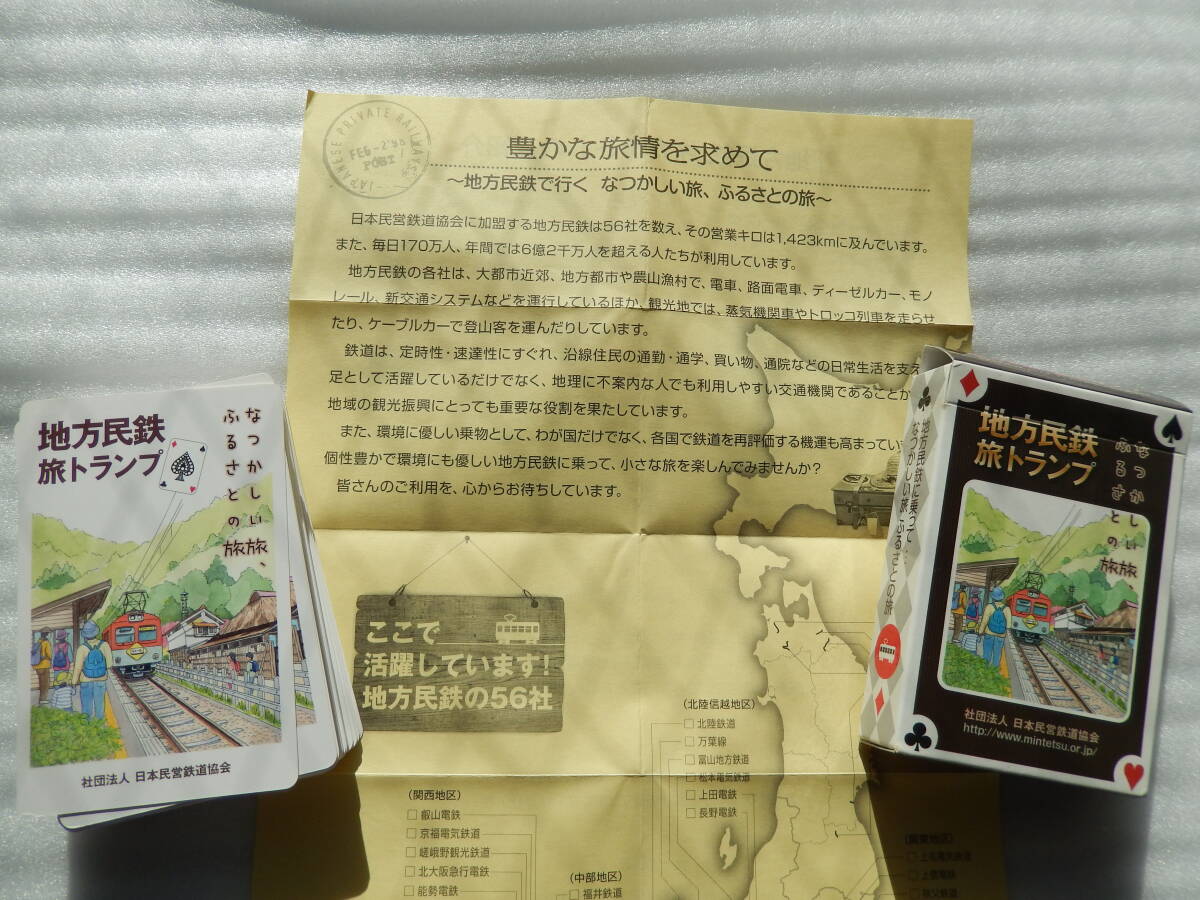 JAPANESE PRIVATE RAILWAY
FEB
豊かな旅情を求めて
～地方民鉄で行く なつかしい旅、ふるさとの旅～
日本民営鉄道協会に加盟する地方民鉄は56社を数え、その営業キロは1,423kmに及んでいます。
また、毎日170万人、年間では6億2千万人を超える人たちが利用しています。
地方民鉄の各社は、大都市近郊、地方都市や農山漁村で、電車、路面電車、ディーゼルカー、モノ
レール、新交通システムなどを運行しているほか、観光地では、蒸気機関車やトロッコ列車を走らせ
たり、ケーブルカーで登山客を運んだりしています。
鉄道は、定時性・速達性にすぐれ、沿線住民の通勤・通学、買い物、通院などの日常生活を支え
足として活躍しているだけでなく、地理に不案内な人でも利用しやすい交通機関であることか
地域の観光振興にとっても重要な役割を果たしています。
また、環境に優しい乗物として、わが国だけでなく、各国で鉄道を再評価する機運も高まってい
個性豊かで環境にも優しい地方民鉄に乗って、小さな旅を楽しんでみませんか？
皆さんのご利用を、心からお待ちしています。
ここで
活躍しています!
地方民鉄の56社
(北陸信越地区)
北陸鉄道
万葉線
富山地方鉄道
松本電気鉄道
上田電鉄
長野電鉄
(関西地区)
叡山電鉄
京福電気鉄道
嵯峨野観光鉄道
北大阪急行電鉄
能勢電鉄
(中部地区)
福井鉄道
(関東地区)
上毛電気鉄道
上信電鉄
秩父鉄道
地方民鉄
旅トランプ
なつかしい旅、
ふるさとの旅
社団法人 日本民営鉄道協会
地方民鉄に乗って…
なつかしい旅 ふるさとの旅
地方民鉄
旅トランプ
なつかしい旅
ふるさとの旅
社団法人 日本民営鉄道協会
http://www.mintetsu.or.jp/